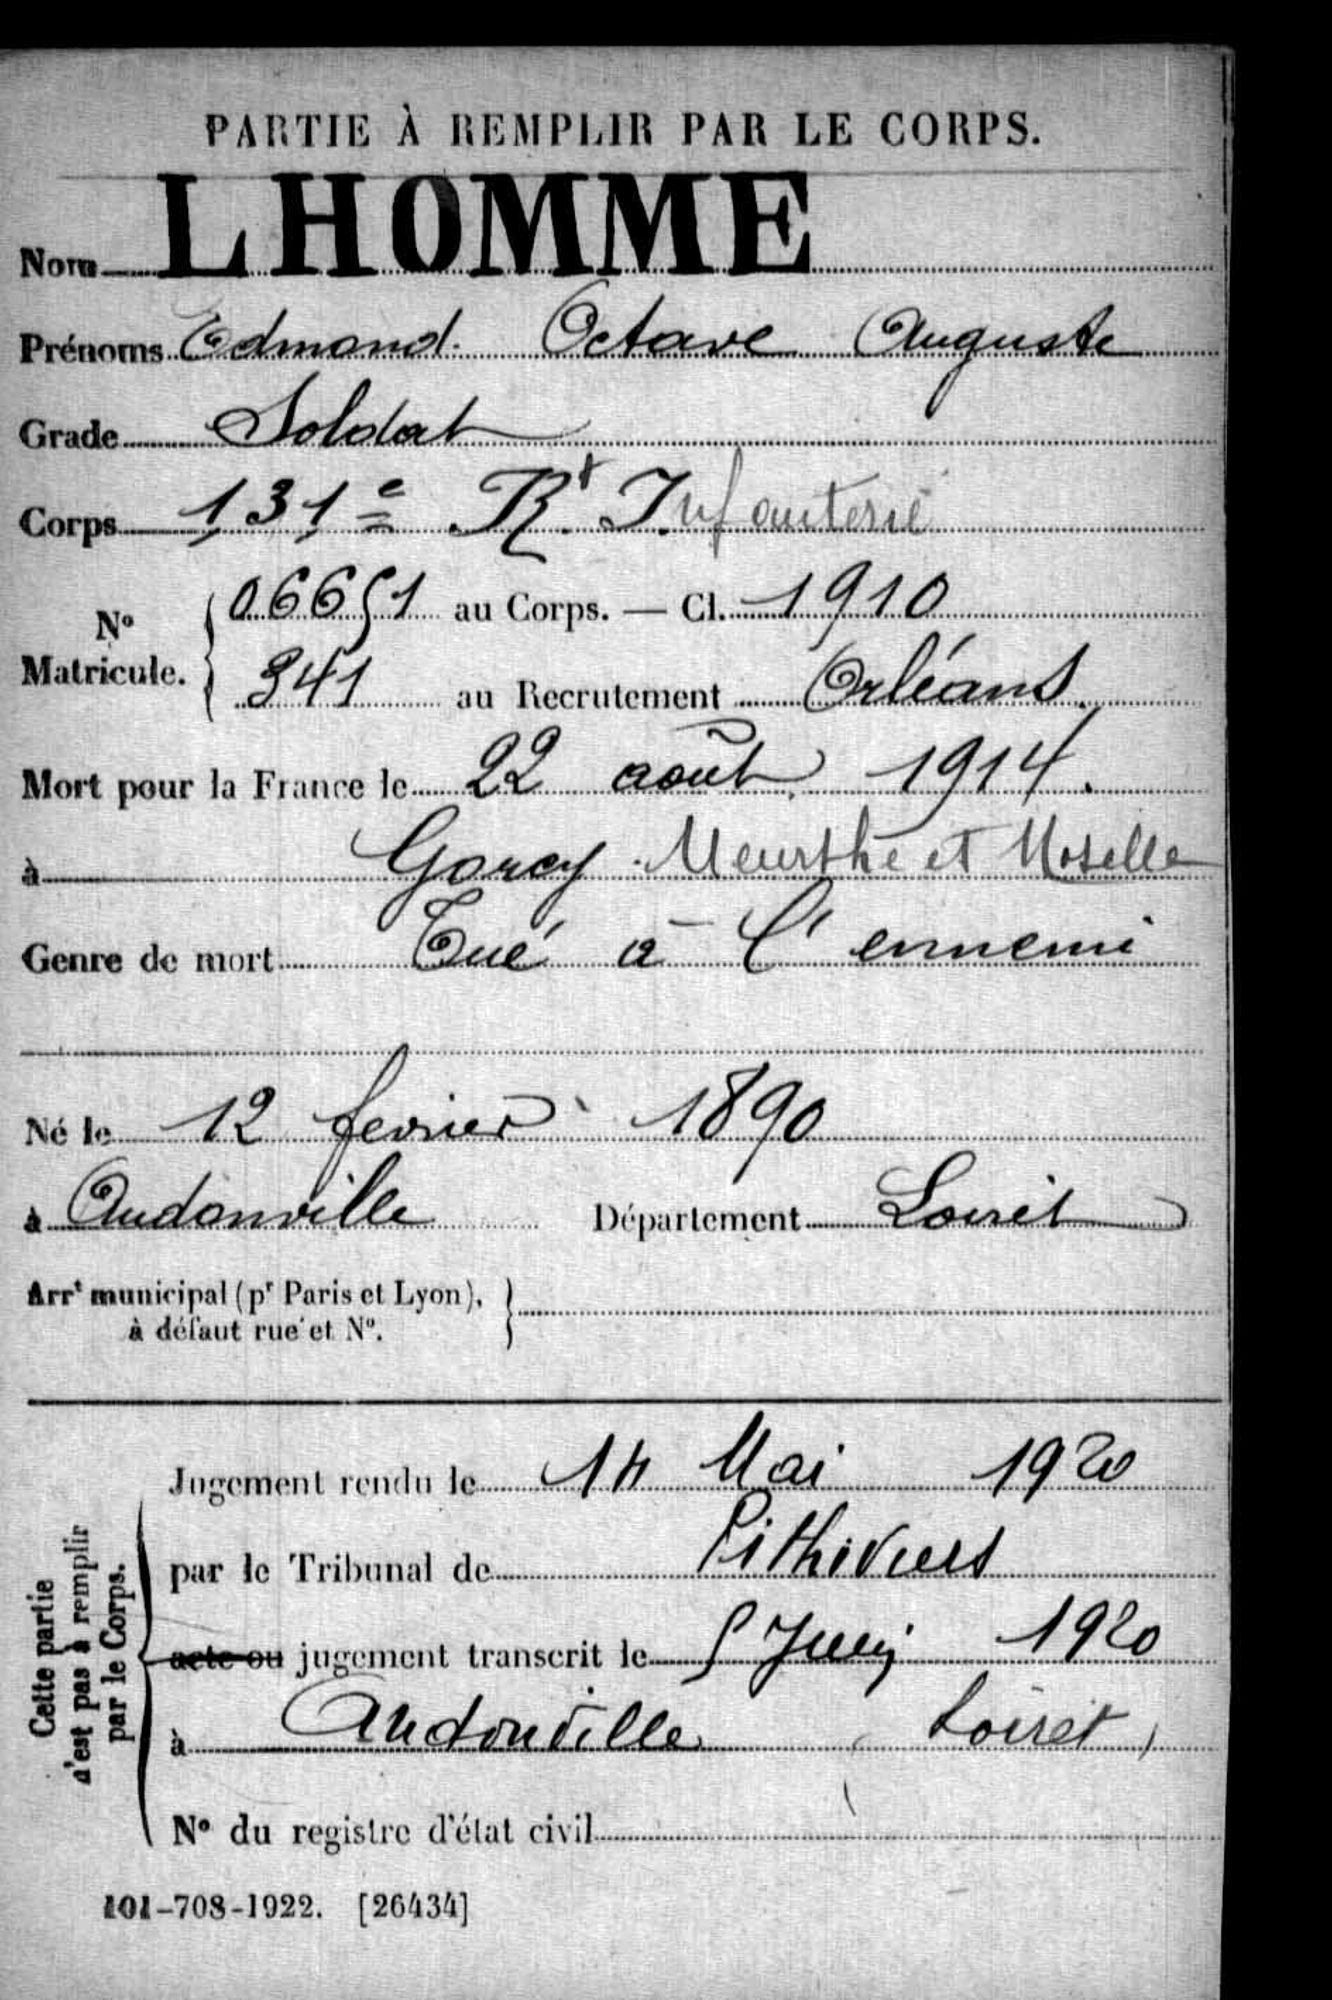 PARTIE À REMPLIR PAR LE CORPS.
Nom LHOMME
Prénoms Edmond Octave Auguste
Grade Soldat
Corps 131e Rt Infanterie
No Matricule. { 06651 au Corps. — Cl. 1910
341 au Recrutement Orléans
Mort pour la France le 22 août 1914.
à Gorcy Meurthe et Moselle
Genre de mort Tué à l'ennemi
Né le 12 fevrier 1890
à Audonville Département Loiret
Arrt municipal (pr Paris et Lyon),
à défaut rue et No.
Cette partie
n'est pas à remplir
par le Corps.
Jugement rendu le 14 Mai 1920
par le Tribunal de Pithiviers
acte ou jugement transcrit le 5 Juin 1920
à Andonville (Loiret)
No du registre d'état civil
101-708-1922. [26434]